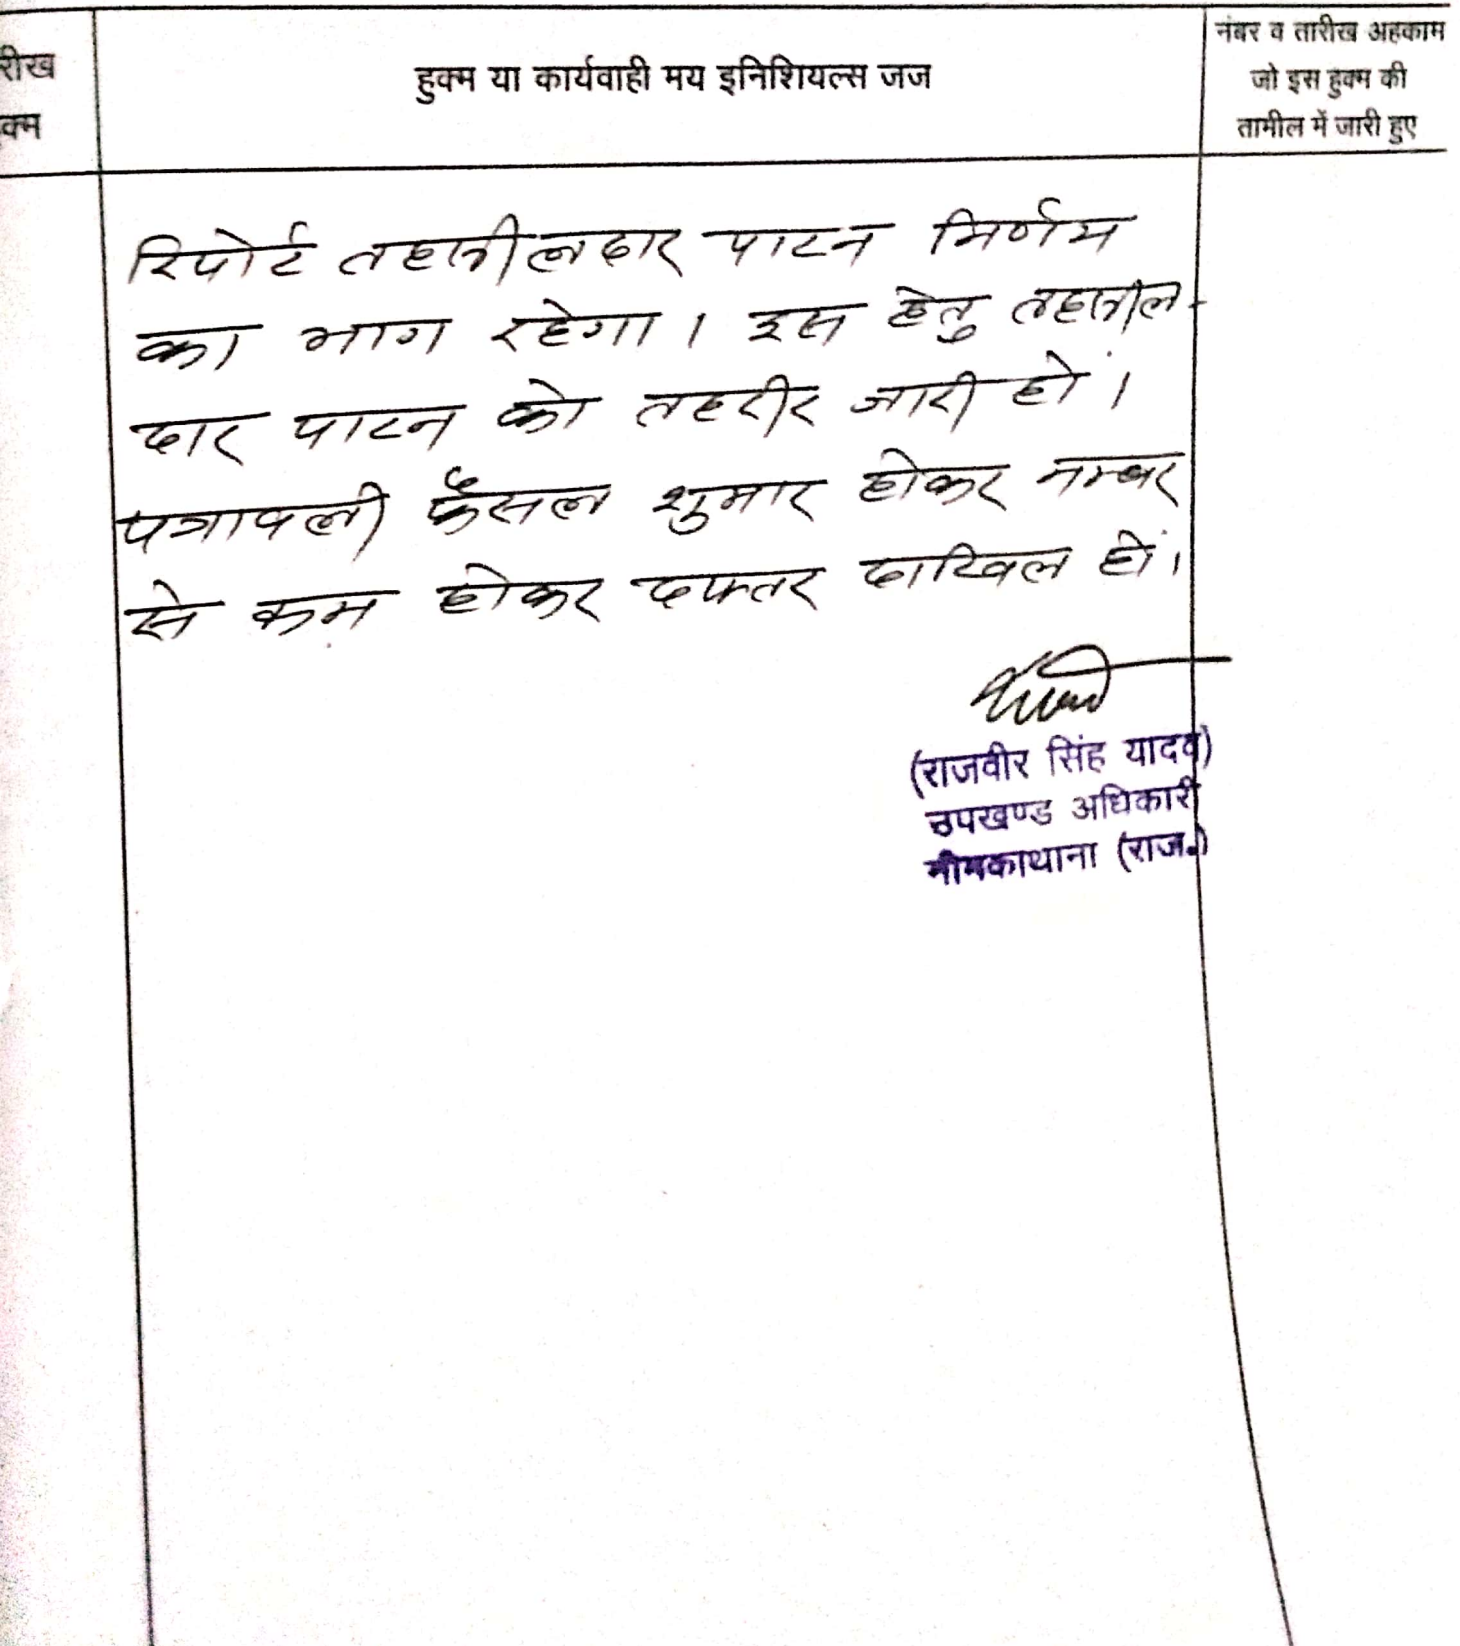 रीख
क्म
हुक्म या कार्यवाही मय इनिशियल्स जज
नंबर व तारीख अहकाम
जो इस हुक्म की
तामील में जारी हुए
रिपोर्ट तहसीलदार पाटन निर्णय
का भाग रहेगा। इस हेतु तहसील-
दार पाटन को तहरीर जारी हों।
पत्रावली फैंसल शुमार होकर नम्बर
से कम होकर दफ्तर दाखिल हों।
(राजवीर सिंह यादव)
उपखण्ड अधिकारी
नीमकाथाना (राज.)